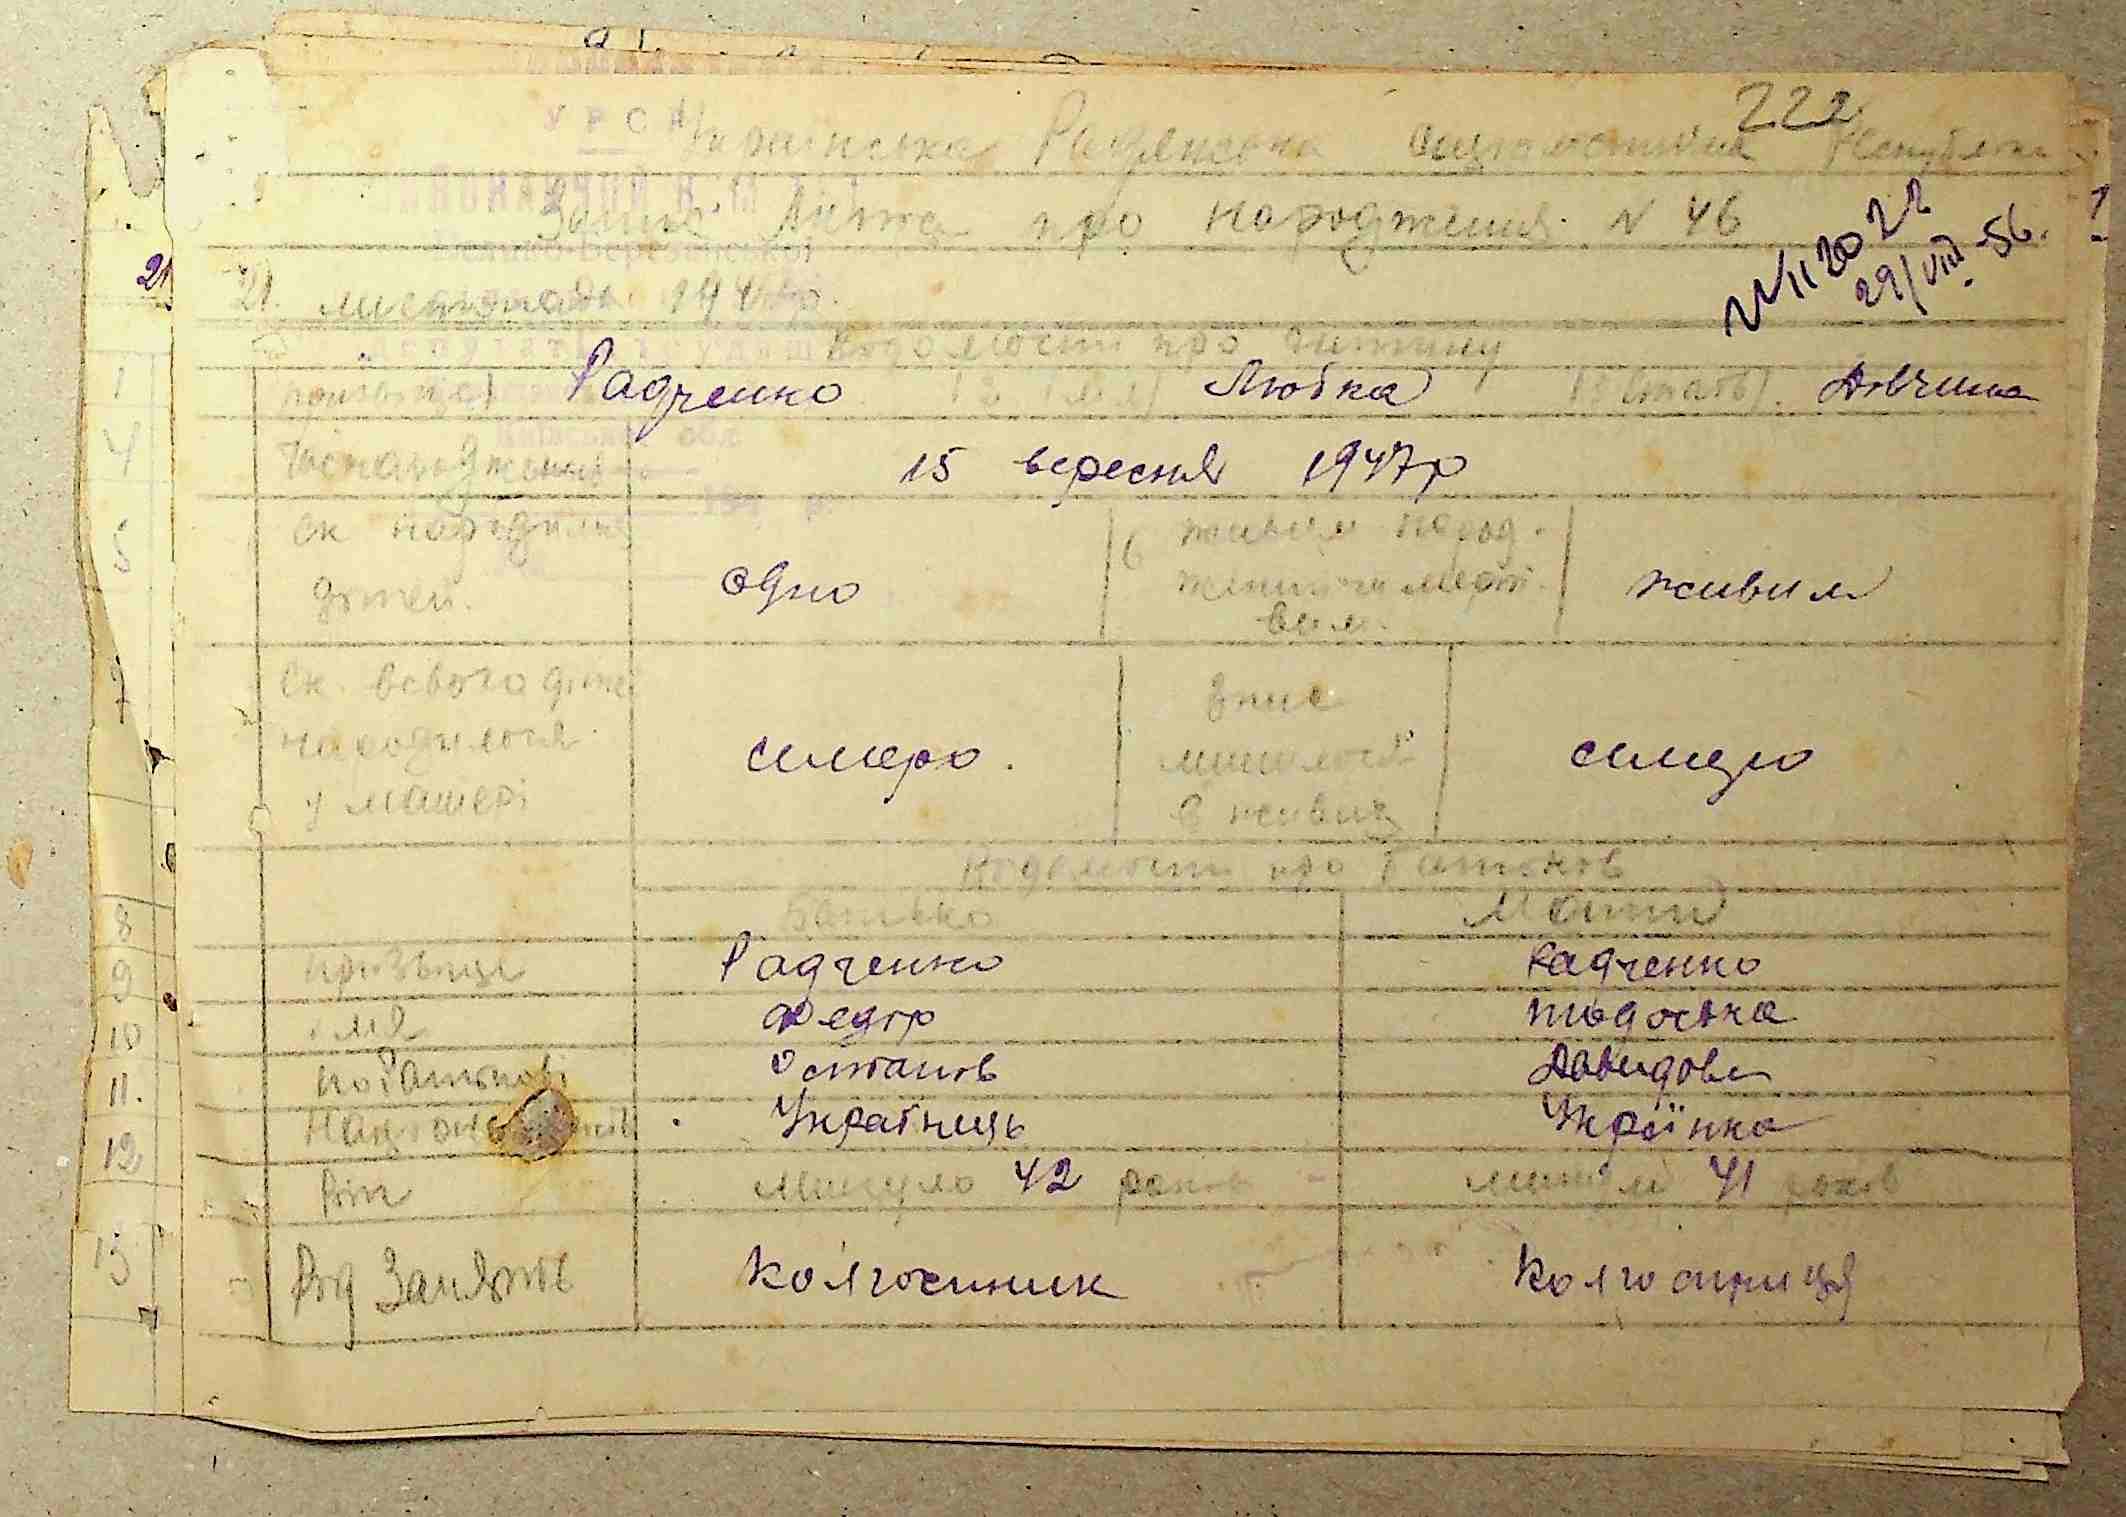 222
Українська Радянська Соціалістична Республіка
УРСР
Запис Акта про народження N 46
N II 2022
29/VIII 56.
21. листопада 1947р.
Відомості про дитину
1 прізвище Радченко 2 Імя Любка 3 стать Дівчина
4 Час народження 15 вересня 1947р
5 Ск народилося дітей. одно 6 живим народженим чи мертвим. живим
7 Ск. всього діте народилося у матері семеро. з них лишилося в живих семеро
Відомості про батьків
8 Батько Мати
9 прізвище Радченко Радченко
10 імя Федір Тодоська
11. по батькові Остапов Давидови
12 Національність Українець Украінка
Вік Минуло 42 років минуло 41 років
13 Рід Занятів Колгоспник Колгоспниця